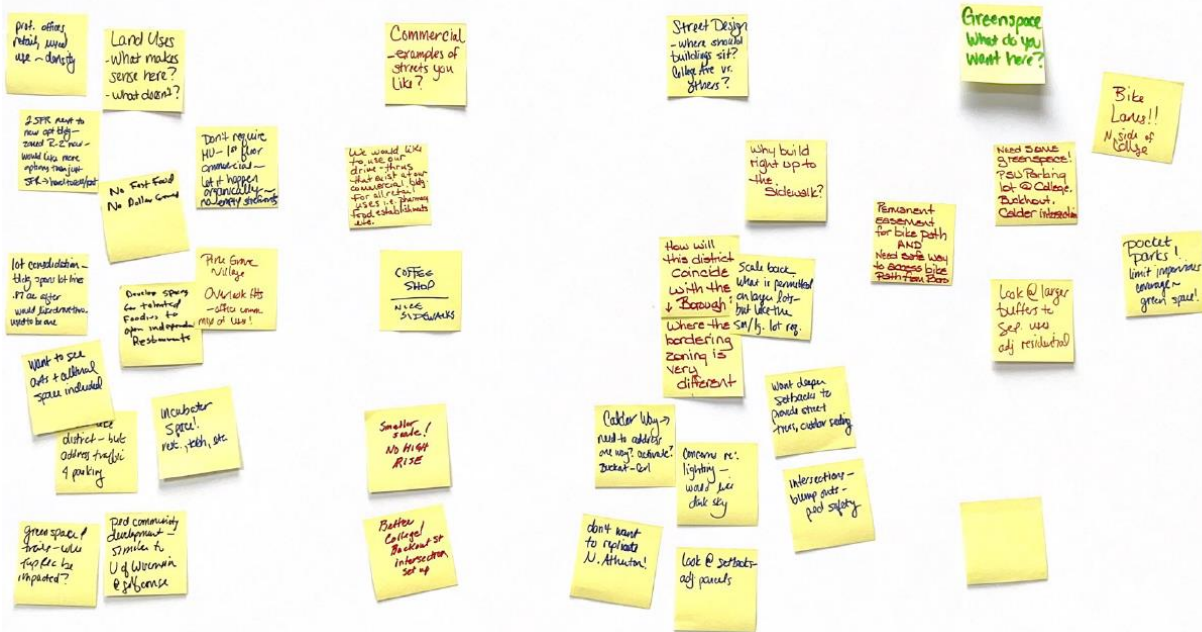 prof. offices
retail, mixed
use - density
Land Uses
- What makes
sense here?
- What doesn't?
2 SFR next to
new apt bldg -
zoned R-2 now -
would like more
options than just
SFR
No Fast Food
No Dollar General
Don't require
MU - 1st floor
commercial -
let it happen
organically -
no empty storefronts
lot consolidation -
bldg spans lot lines
after
would like
used to be one
Develop spaces
for talented
Foodies to
open independent
Restaurants
Pine Grove
Village
Overlook Hts
- office comm
mix of use!
Want to see
arts + cultural
space included
use
district - but
address traffic
& parking
incubator
space!
ret., tech, etc.
greenspace &
trails - will
be
impacted?
Ped community
development -
similar to
U of Wisconsin
@ golf course
Commercial
- examples of
streets you
like?
We would like
to use our
drive-thrus
that exist at our
commercial bldg
for all retail
uses i.e. pharmacy
food establishments
etc.
COFFEE
SHOP
NICE
SIDEWALKS
Smaller
scale!
NO HIGH
RISE
Better
College/
Buckout St
intersection
set up
Street Design
- where should
buildings sit?
College Ave vs.
others?
Why build
right up to
the
Sidewalk?
How will
this district
coincide
with the
↓ Borough?
Where the
bordering
zoning is
very
different
Scale back
what is permitted
on larger lots -
but like the
sm/lg. lot reg.
Want deeper
setbacks to
provide street
trees, outdoor seating
Calder Way →
need to address
one way? activate?
Buckout -
Concerns re:
lighting -
would like
dark sky
intersections -
bump outs -
ped safety
don't want
to replicate
N. Atherton!
Look @ setbacks -
adj parcels
Greenspace
What do you
want here?
Bike
Lanes!!
N. side of
College
Need some
greenspace!
PSU Parking
lot @ College.
Buckhout.
Calder intersection
Permanent
easement
for bike path
AND
Need safe way
to access bike
Path from Boro
pocket
parks!
limit impervious
coverage -
green space!
Look @ larger
buffers to
sep. uses
adj residential